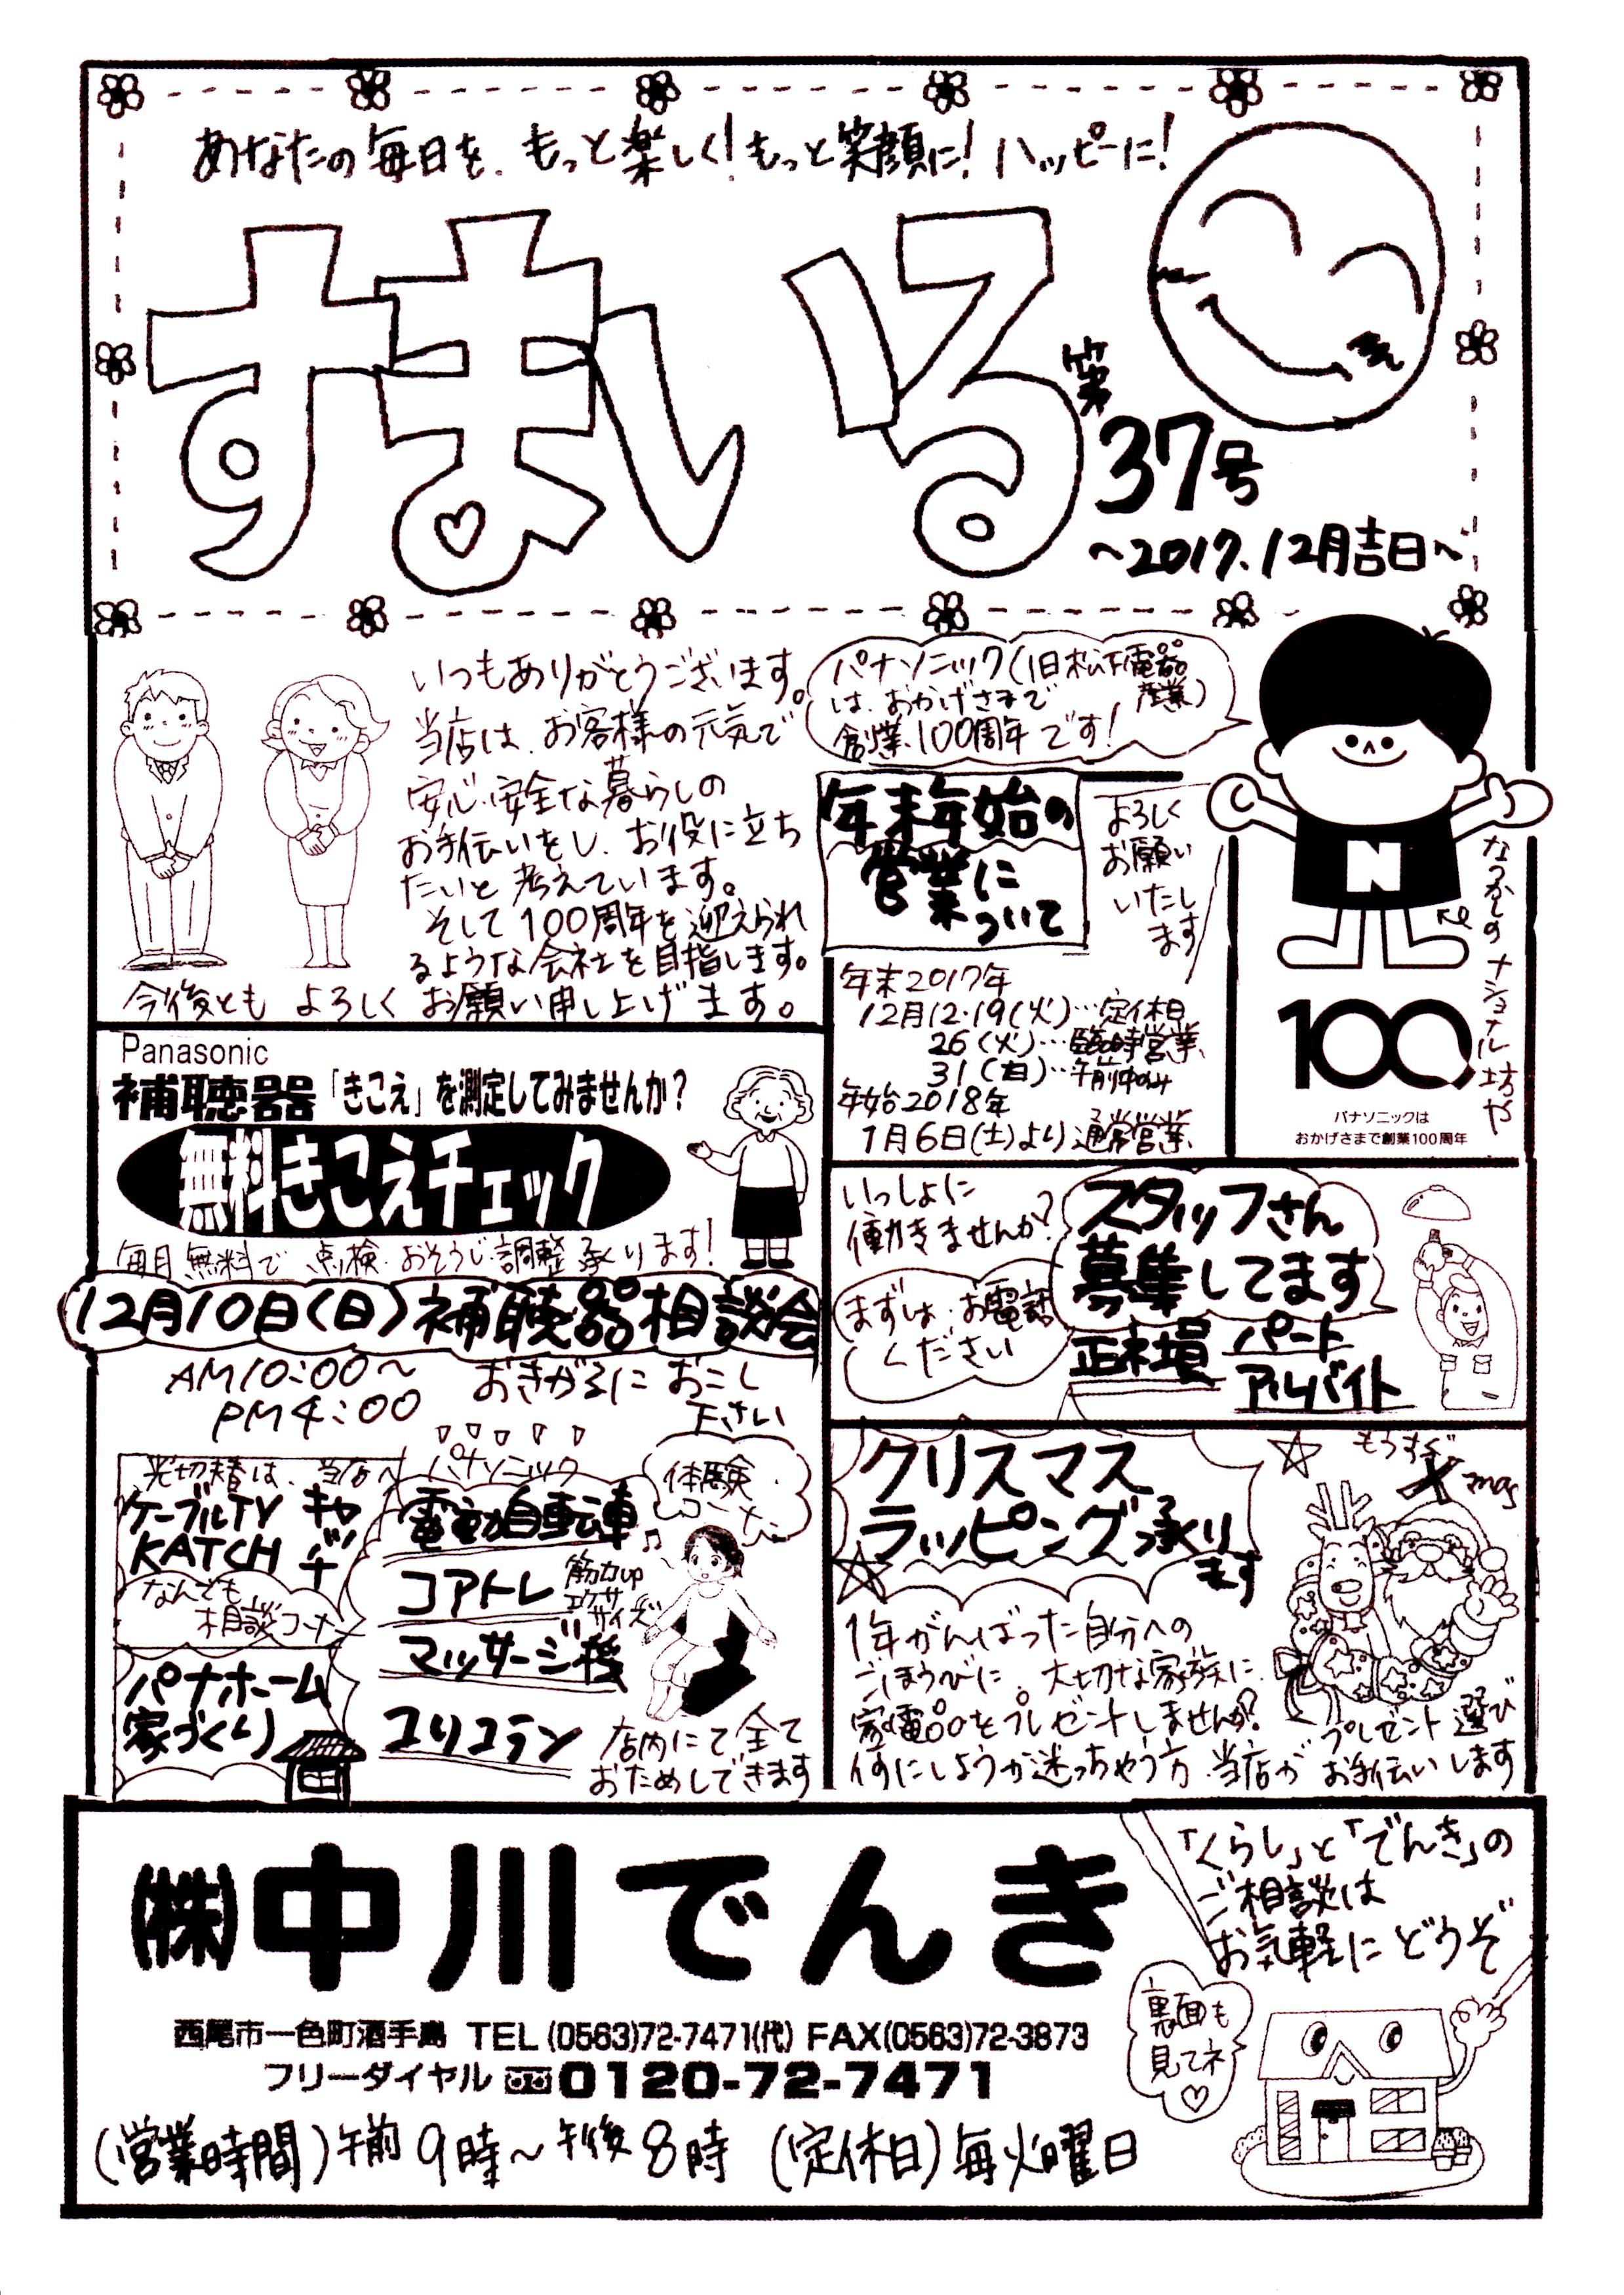 あなたの毎日を、もっと楽しく!もっと笑顔に!ハッピーに!
すまいる
第
37号
～2017.12月吉日～
いつもありがとうございます。
当店は、お客様の元気で
安心・安全な暮らしの
お手伝いをし、お役に立ち
たいと考えています。
そして100周年を迎えられ
るような会社を目指します。
今後とも よろしく お願い申し上げます。
パナソニック(旧松下電器
産業)
は、おかげさまで
創業100周年です!
年末年始の
営業に
ついて
よろしく
お願い
いたし
ます
年末2017年
12月12・19(火)…定休日
26(火)…臨時営業
31(日)…午前中のみ
年始2018年
1月6日(土)より通常営業
N
なつかしのナショナル坊や
100
パナソニックは
おかげさまで創業100周年
Panasonic
補聴器「きこえ」を測定してみませんか?
無料きこえチェック
毎月無料で 点検・おそうじ・調整承ります!
12月10日(日)補聴器相談会
AM10:00～
PM4:00
おきがるに おこし
下さい
いっしょに
働きませんか?
まずは、お電話
ください
スタッフさん
募集してます
正社員
パート
アルバイト
光切替は、当店へ
ケーブルTV キャ
KATCH チ
なんでも
相談コーナー
パナホーム
家づくり
パナソニック
電動自転車
コアトレ
筋力up
エクササイズ
マッサージ機
ユリコラン
体験
コーナー
店内にて全て
おためしできます
クリスマス
ラッピング承り
ます
もうすぐ
Xmas
1年がんばった自分への
ごほうびに、大切な家族に
家電品をプレゼントしませんか?
何にしようか迷っちゃう方、当店が
プレゼント選び
お手伝いします
(株)中川でんき
西尾市一色町酒手島 TEL(0563)72-7471(代) FAX(0563)72-3873
フリーダイヤル 0120-72-7471
(営業時間)午前9時～午後8時 (定休日)毎火曜日
「くらし」と「でんき」の
ご相談は
お気軽に どうぞ
裏面も
見てネ